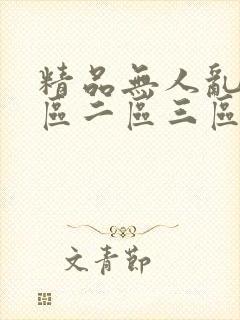 精品無人亂
區二區三區
文青節